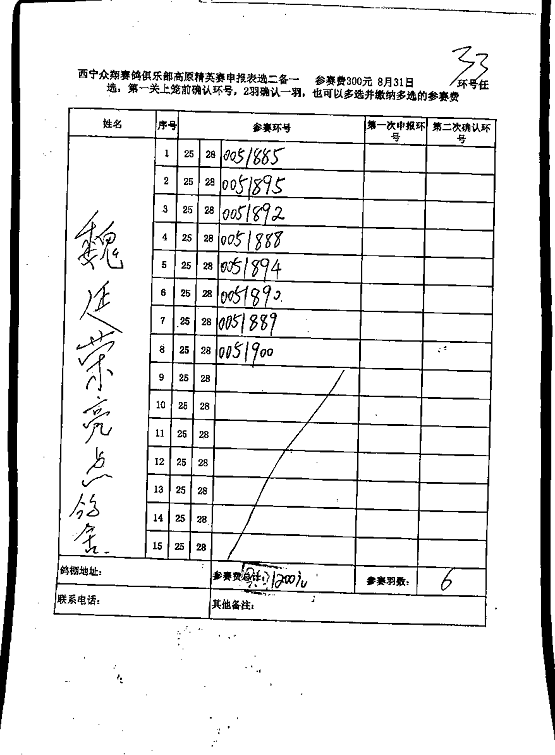 33
西宁众翔赛鸽俱乐部高原精英赛申报表选二备一 参赛费300元 8月31日 环号任
选：第一关上笼前确认环号，2羽确认一羽，也可以多选并缴纳多选的参赛费
姓名 序号 参赛环号 第一次申报环号 第二次确认环号
1 25 28 0051885
2 25 28 0051895
3 25 28 0051892
4 25 28 0051888
5 25 28 0051894
6 25 28 0051890
7 25 28 0051889
8 25 28 0051900
9 25 28
10 25 28
11 25 28
12 25 28
13 25 28
14 25 28
15 25 28
魏延荣亮点鸽舍
鸽棚地址： 参赛费总计： 1200元 参赛羽数： 6
联系电话： 其他备注：